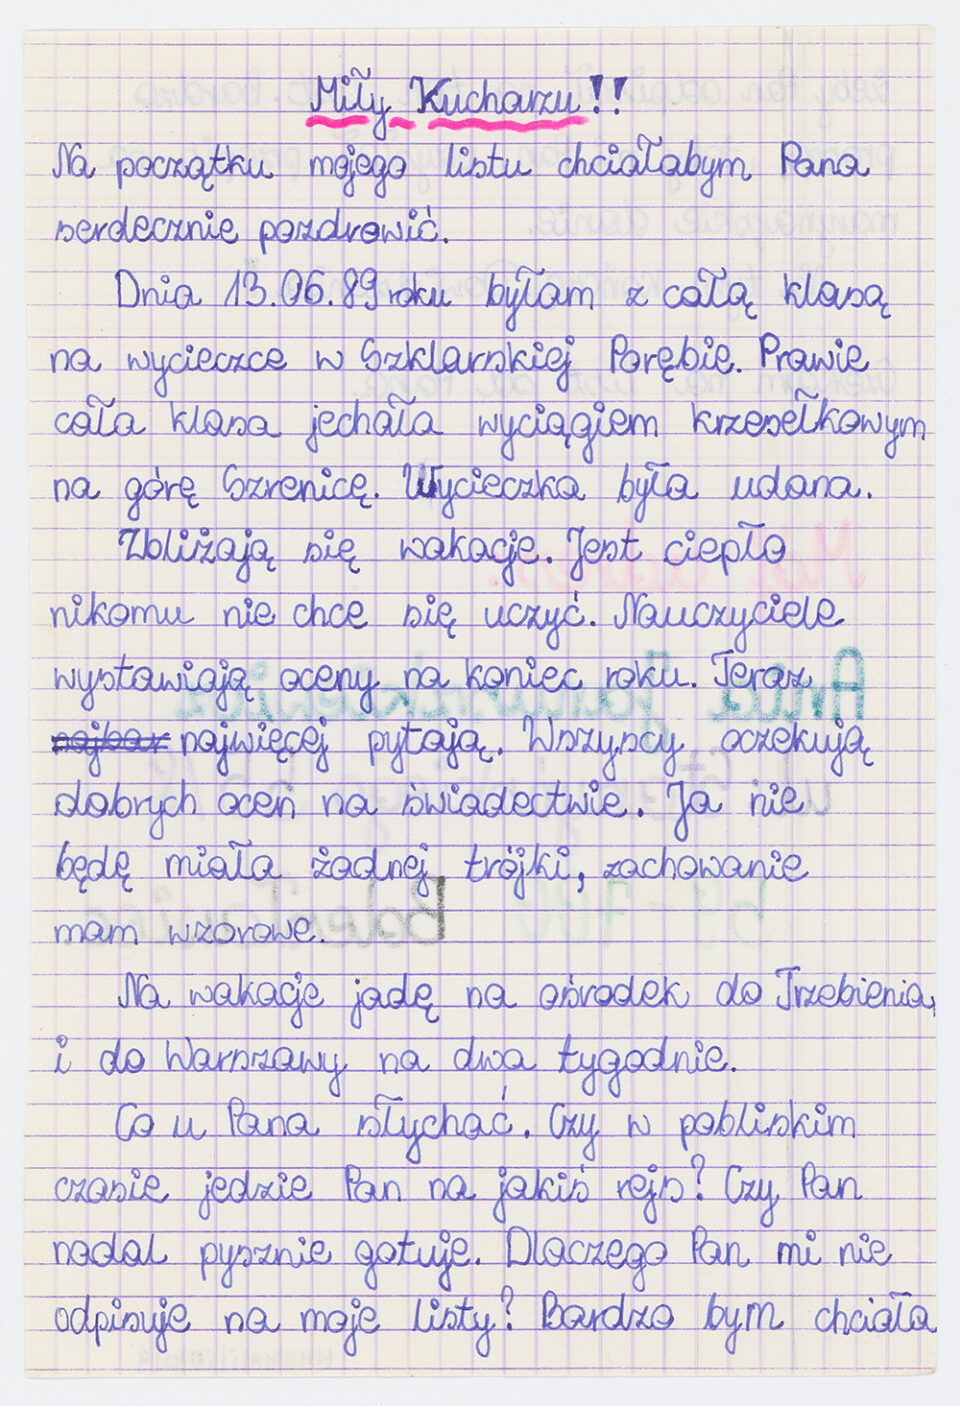 Miły Kucharzu!!
Na początku mojego listu chciałabym Pana
serdecznie pozdrowić.
Dnia 13.06.89 roku byłam z całą klasą
na wycieczce w Szklarskiej Porębie. Prawie
cała klasa jechała wyciągiem krzesełkowym
na górę Szrenicę. Wycieczka była udana.
Zbliżają się wakacje. Jest ciepło
nikomu nie chce się uczyć. Nauczyciele
wystawiają oceny na koniec roku. Teraz
najbar najwięcej pytają. Wszyscy oczekują
dobrych ocen na świadectwie. Ja nie
będę miała żadnej trójki, zachowanie
mam wzorowe.
Na wakacje jadę na ośrodek do Trzebienia,
i do Warszawy na dwa tygodnie.
Co u Pana słychać. Czy w pobliskim
czasie jedzie Pan na jakiś rejs? Czy Pan
nadal pysznie gotuje. Dlaczego Pan mi nie
odpisuje na moje listy? Bardzo bym chciała